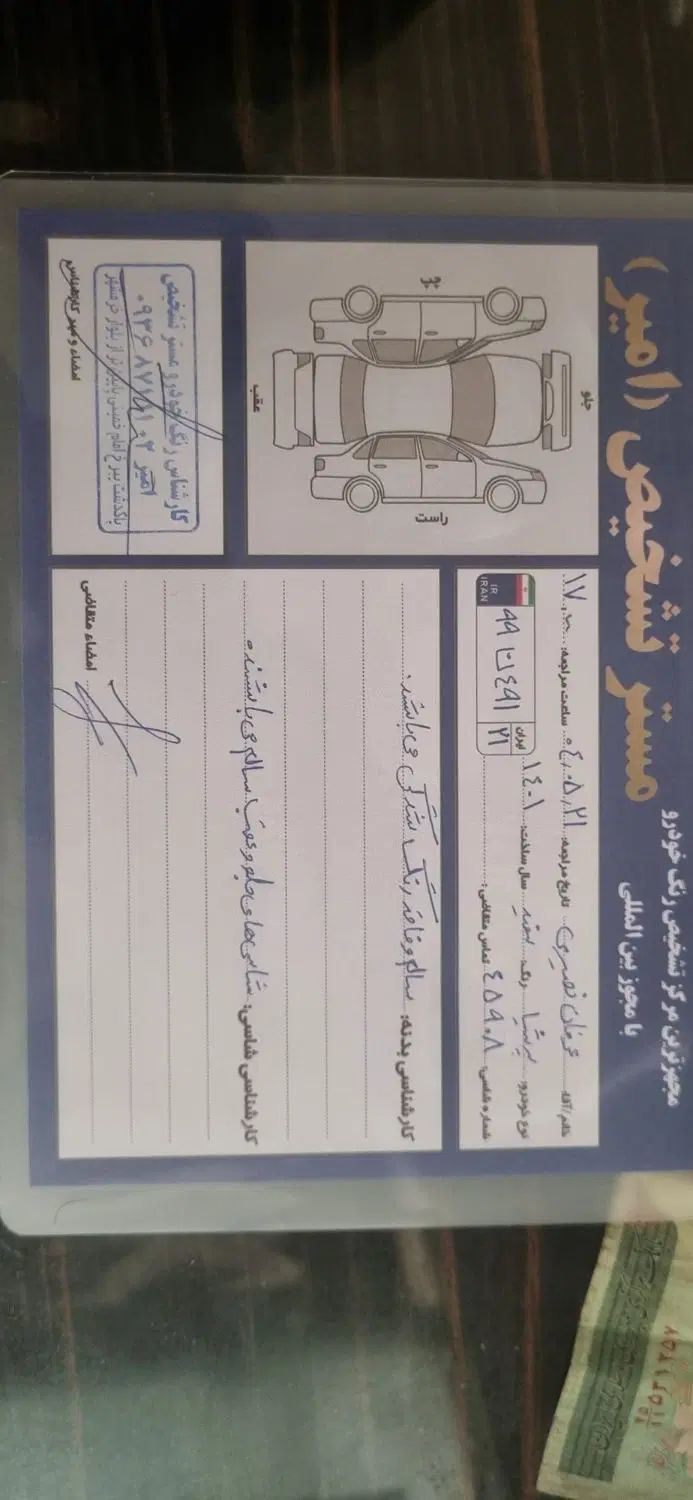 مستر تشخیص (امیر)
مجهزترین مرکز تشخیص رنگ خودرو
با مجوز بین المللی
خانم/آقا: عرفان نصیری تاریخ مراجعه: ۰۴،۰۵،۲۱ ساعت مراجعه: ۱۷
نوع خودرو: پرشیا رنگ: سفید سال ساخت: ۱۴۰۱
شماره شاسی: ۴۵۹۰۸ تماس متقاضی:
I.R. IRAN
۹۹ ۴۹۱ ایران ۲۱
کارشناسی بدنه: سالم و فاقد رنگ شدگی می باشد.
کارشناسی شاسی: شاسی های جلو و عقب سالم می باشند.
امضاء متقاضی
جلو
راست
چپ
عقب
کارشناس رنگ خودرو مستر تشخیص
امیر
پاکدشت بین خ امام خمینی پایین تر از بلوار خرمشهر
امضاء و مهر کارشناس